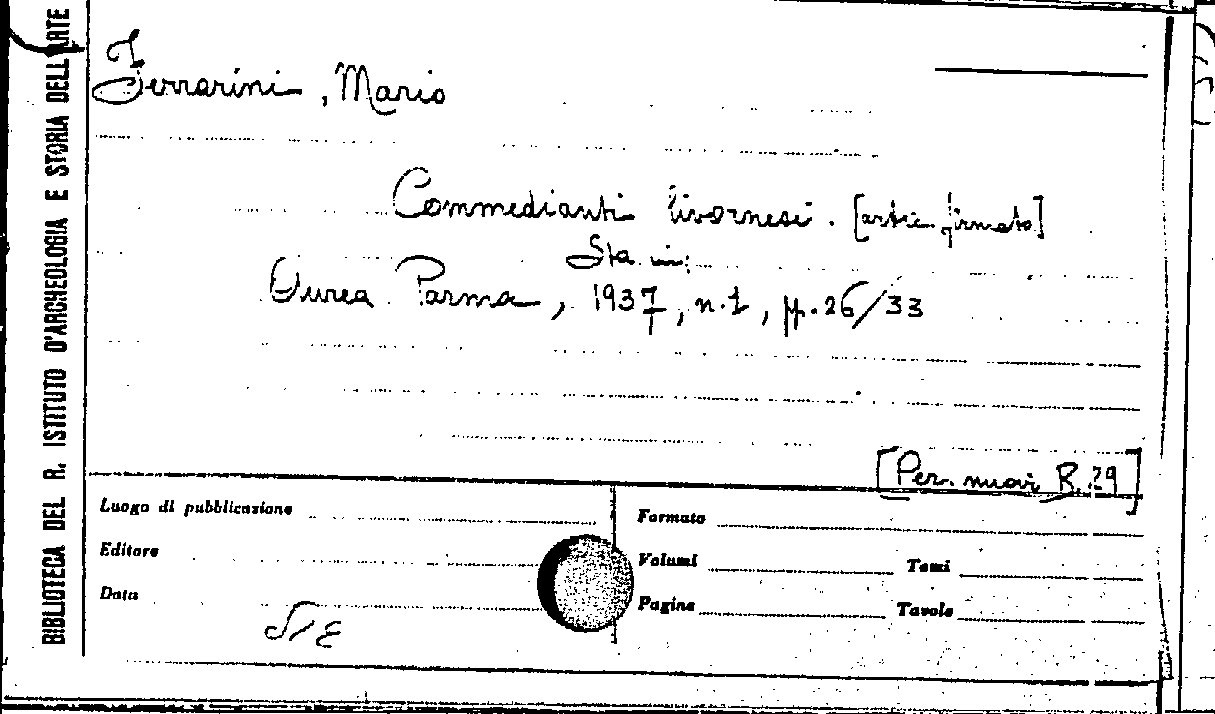 BIBLIOTECA DEL R. ISTITUTO D'ARCHEOLOGIA E STORIA DELL'ARTE
Ferrarini, Mario
Commedianti livornesi. [artic. firmato]
Sta in:
Aurea Parma, 1937, n.1, pp.26/33
[Per. nuovi R. 29]
Luogo di pubblicazione
Formato
Editore
Volumi Tomi
Data
Pagine Tavole